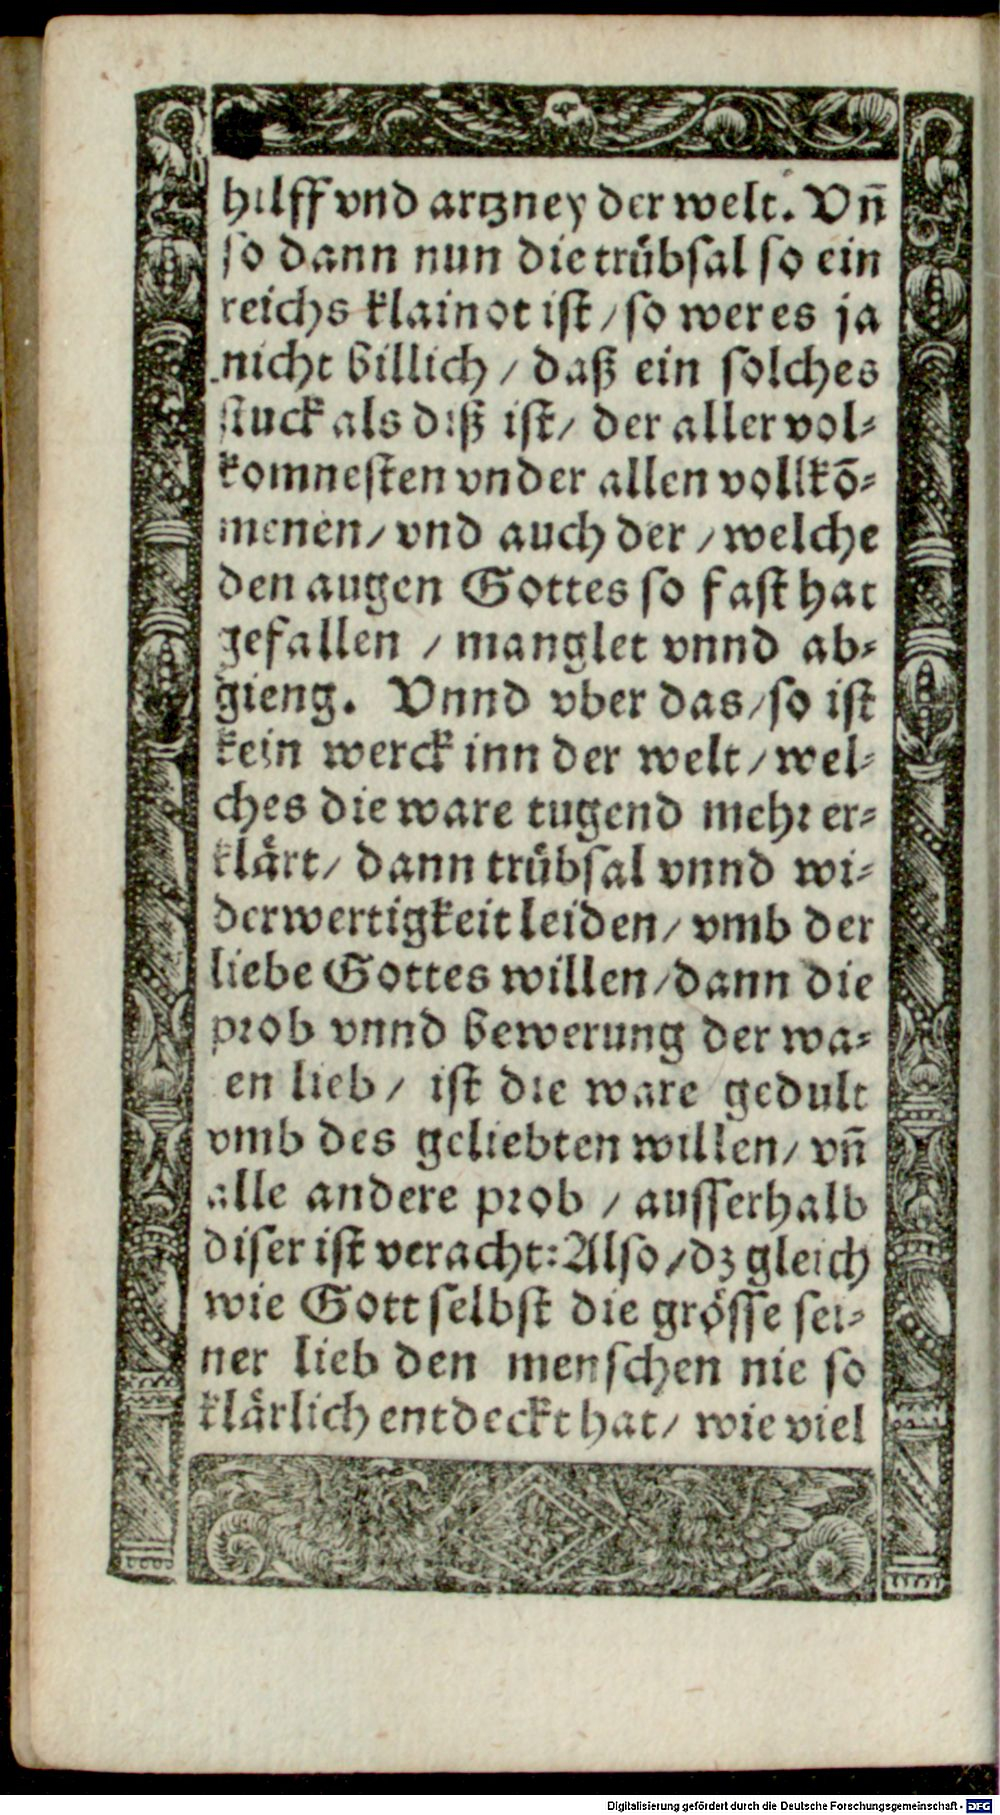 hilff vnd artzney der welt. Vn̄
so dann nun die trübsal so ein
reichs klainot ist / so wer es ja
nicht billich / daß ein solches
stuck als diß ist / der aller vol-
komnesten vnder allen vollkō-
menen / vnd auch der / welche
den augen Gottes so fast hat
gefallen / manglet vnnd ab-
gieng. Vnnd vber das / so ist
kein werck inn der welt / wel-
ches die ware tugend mehr er-
klärt / dann trübsal vnnd wi-
derwertigkeit leiden / vmb der
liebe Gottes willen / dann die
prob vnnd bewerung der wa-
en lieb / ist die ware gedult
vmb des geliebten willen / vn̄
alle andere prob / ausserhalb
diser ist veracht: Also / dz gleich
wie Gott selbst die grösse sei-
ner lieb den menschen nie so
klärlich entdeckt hat / wie viel
Digitalisierung gefördert durch die Deutsche Forschungsgemeinschaft - DFG